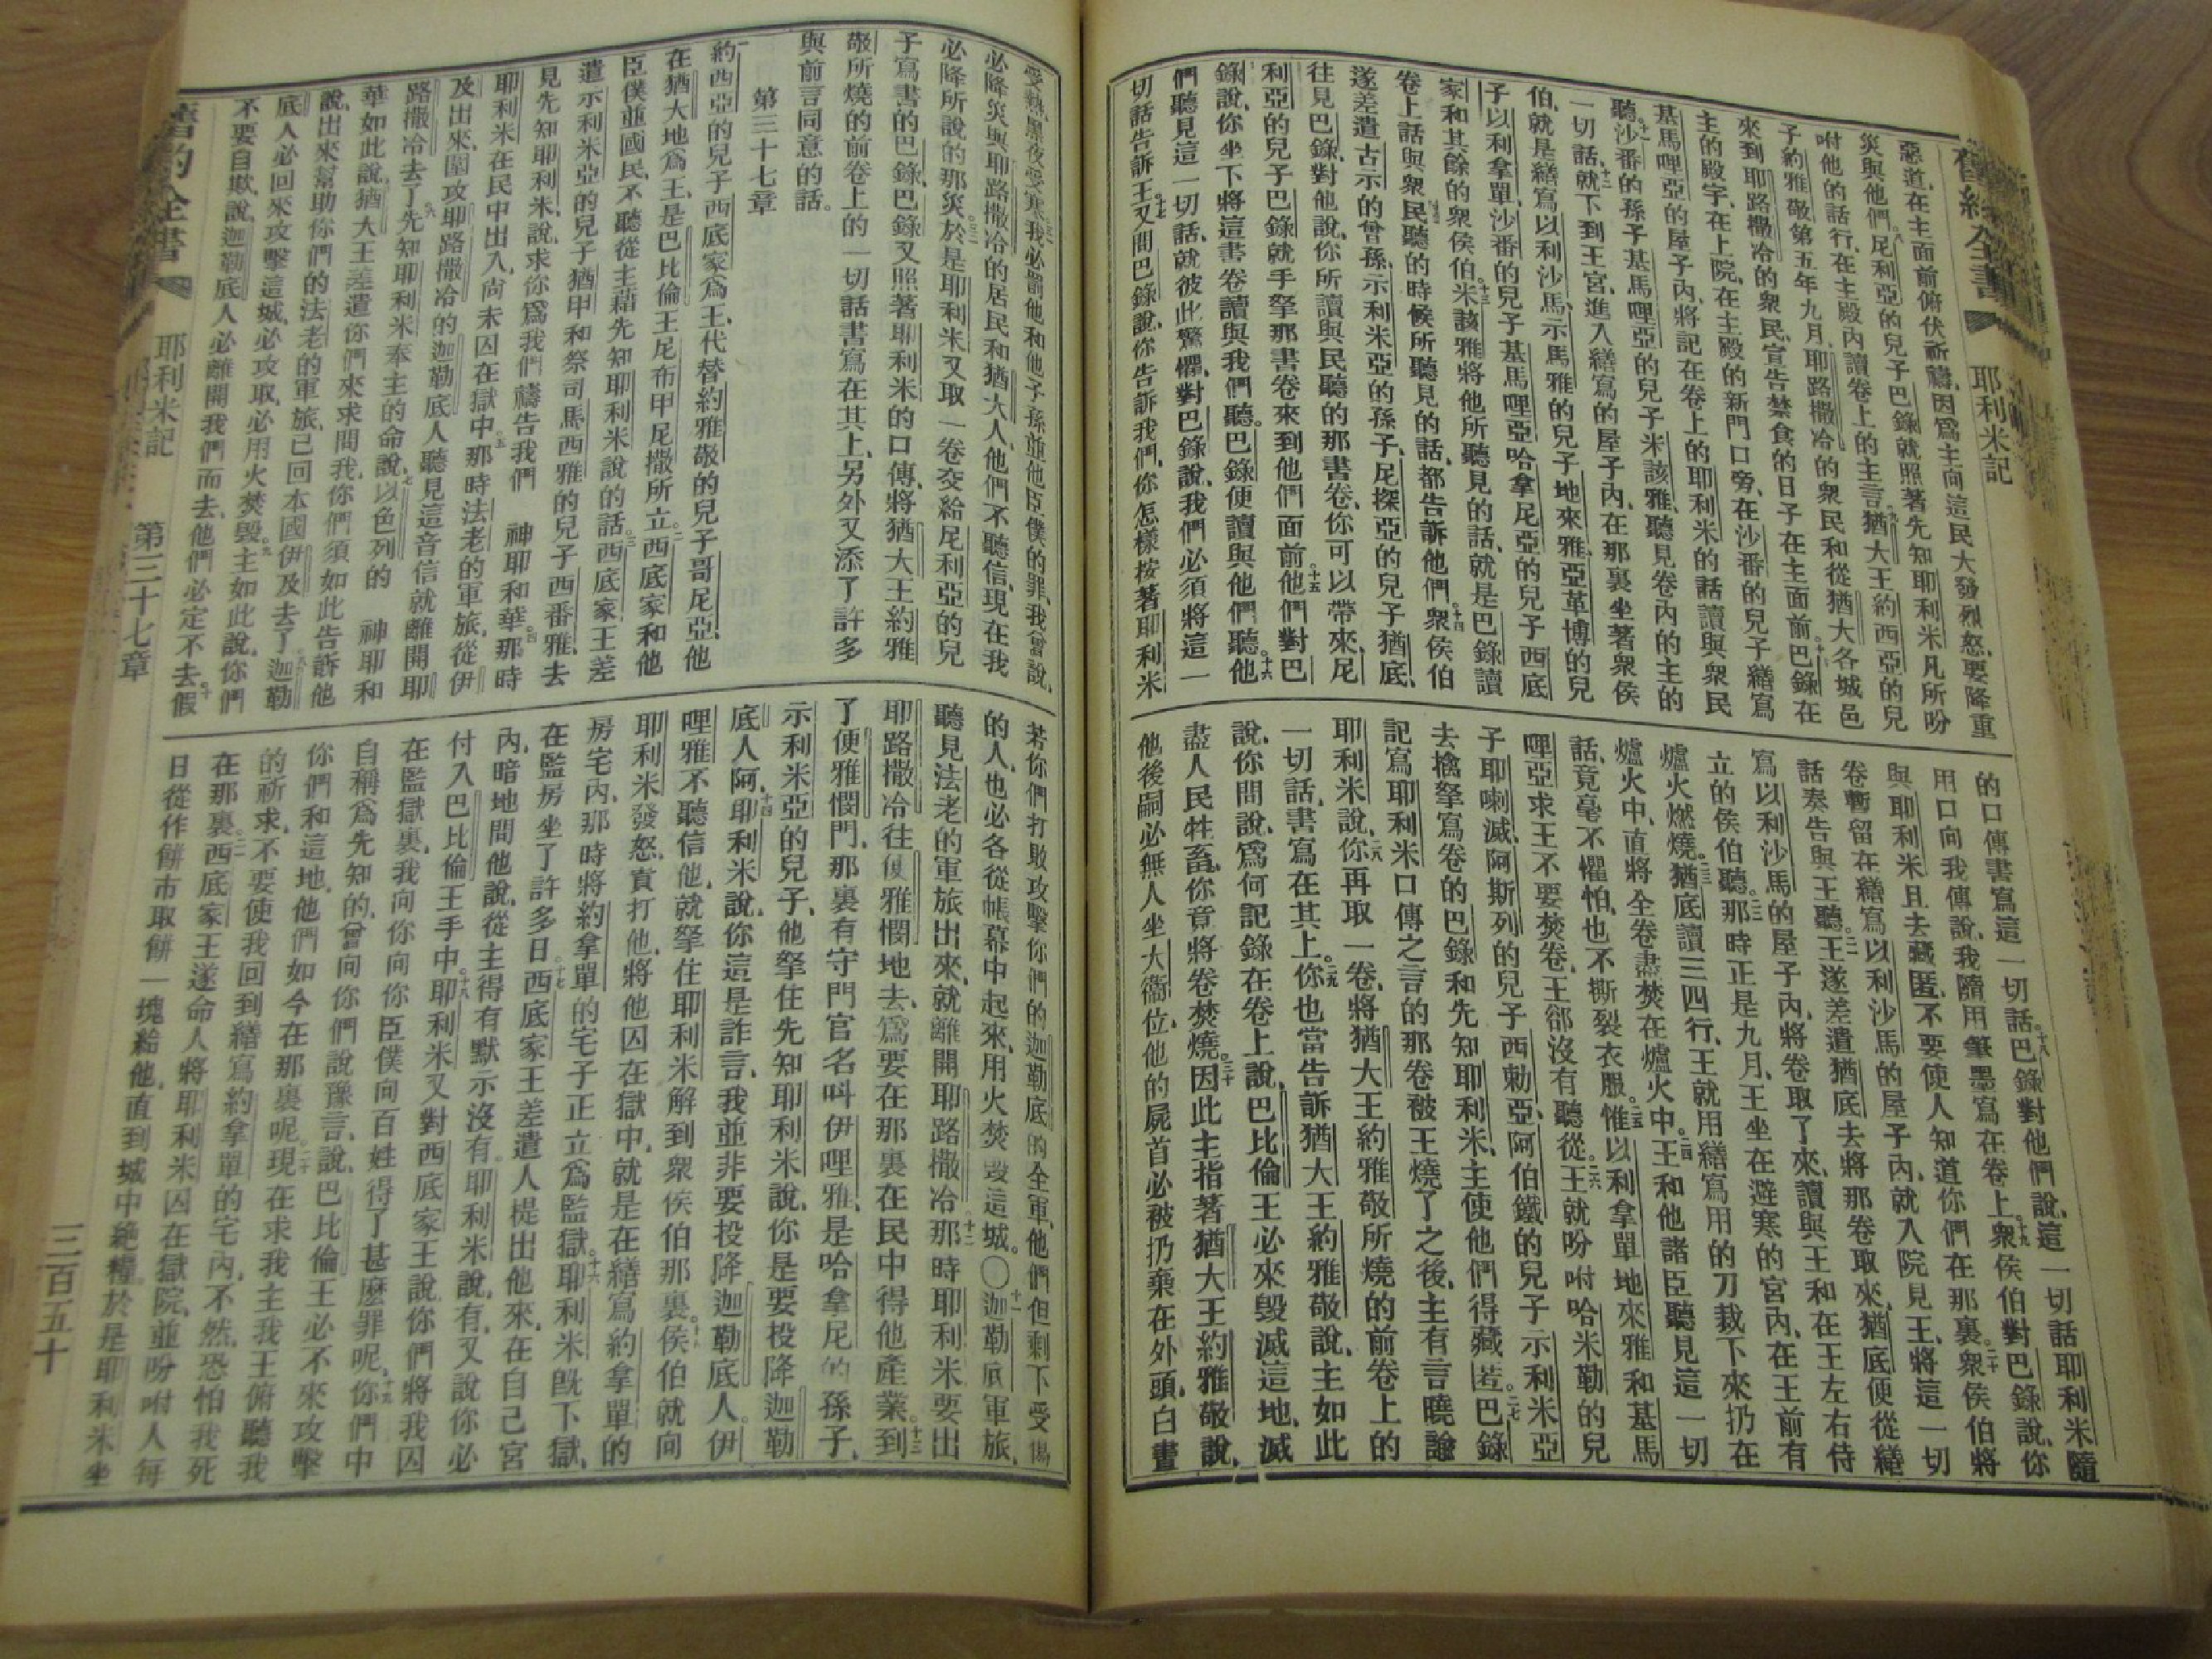 舊約全書
耶利米記
惡道在主面前俯伏祈禱、因爲主向這民大發烈怒、要降重
災與他們。八尼利亞的兒子巴錄就照著先知耶利米凡所吩
咐他的話行、在主殿內讀卷上的主言。九猶大王約西亞的兒
子約雅敬第五年九月、耶路撒冷的衆民和從猶大各城邑
來到耶路撒冷的衆民、宣告禁食的日子在主面前。十巴錄在
主的殿宇、在上院、在主殿的新門口旁、在沙番的兒子繕寫
基馬哩亞的屋子內、將記在卷上的耶利米的話讀與衆民
聽。十一沙番的孫子基馬哩亞的兒子米該雅、聽見卷內的主的
一切話、十二就下到王宮、進入繕寫的屋子內、在那裏坐著衆侯
伯、就是繕寫以利沙馬、示馬雅的兒子地來雅、亞革博的兒
子以利拿單、沙番的兒子基馬哩亞、哈拿尼亞的兒子西底
家和其餘的衆侯伯。十三米該雅將他所聽見的話、就是巴錄讀
卷上話與衆民聽的時候所聽見的話、都告訴他們。十四衆侯伯
遂差遣古示的曾孫、示利米亞的孫子、尼探亞的兒子猶底、
往見巴錄、對他說、你所讀與民聽的那書卷、你可以帶來、尼
利亞的兒子巴錄就手拏那書卷來到他們面前。十五他們對巴
錄說、你坐下將這書卷讀與我們聽。巴錄便讀與他們聽。十六他
們聽見這一切話、就彼此驚懼、對巴錄說、我們必須將這一
切話告訴王。十七又問巴錄說、你告訴我們、你怎樣按著耶利米
的口傳書寫這一切話。十八巴錄對他們說、這一切話耶利米
用口向我傳說、我隨用筆墨寫在卷上。十九衆侯伯對巴錄說、你
與耶利米且去藏匿、不要使人知道你們在那裏。二十衆侯伯將
卷暫留在繕寫以利沙馬的屋子內、就入院見王、將這一切
話奏告與王聽。二一王遂差遣猶底去將那卷取來、猶底便從繕
寫以利沙馬的屋子內、將卷取了來、讀與王和在王左右侍
立的侯伯聽。二二那時正是九月、王坐在避寒的宮內、在王前有
爐火燃燒。二三猶底讀三四行、王就用繕寫用的刀裁下來扔在
爐火中、直將全卷盡焚在爐火中。二四王和他諸臣聽見這一切
話、竟毫不懼怕、也不撕裂衣服。二五惟以利拿單地來雅和基馬
哩亞求王不要焚卷、王卻沒有聽從。二六王就吩咐哈米勒的兒
子耶喇滅、阿斯列的兒子西勅亞、阿伯鐵的兒子示利米亞
去擒拏寫卷的巴錄和先知耶利米、主使他們得藏匿。二七巴錄
記寫耶利米口傳之言的那卷被王燒了之後、主有言曉諭
耶利米說、二八你再取一卷、將猶大王約雅敬所燒的前卷上的
一切話、書寫在其上。二九你也當告訴猶大王約雅敬說、主如此
說、你問說、爲何記錄在卷上說、巴比倫王必來毀滅這地、滅
盡人民牲畜、你竟將卷焚燒。三十因此主指著猶大王約雅敬說、
他後嗣必無人坐大衞位、他的屍首必被扔棄在外頭、白晝
受熱、黑夜受寒。三一我必罰他和他子孫並他臣僕的罪、我曾說、
必降災與耶路撒冷的居民和猶大人、他們不聽信、現在我
必降所說的那災。三二於是耶利米又取一卷交給尼利亞的兒
子寫書的巴錄、巴錄又照著耶利米的口傳、將猶大王約雅
敬所燒的前卷上的一切話書寫在其上、另外又添了許多
與前言同意的話。
第三十七章
約西亞的兒子西底家爲王、代替約雅敬的兒子哥尼亞、他
在猶大地爲王、是巴比倫王尼布甲尼撒所立。二西底家和他
臣僕並國民、不聽從主藉先知耶利米說的話。三西底家王差
遣示利米亞的兒子猶甲和祭司馬西雅的兒子西番雅、去
見先知耶利米、說、求你爲我們禱告我們　神耶和華。四那時
耶利米在民中出入、尚未囚在獄中。五那時法老的軍旅、從伊
及出來、圍攻耶路撒冷的迦勒底人聽見這音信就離開耶
路撒冷去了。六先知耶利米奉主的命說、七以色列的　神耶和
華如此說、猶大王差遣你們來求問我、你們須如此告訴他
說、出來幫助你們的法老的軍旅、已回本國伊及去了。八迦勒
底人必回來攻擊這城、必攻取、必用火焚毀。九主如此說、你們
不要自欺、說、迦勒底人必離開我們而去、他們必定不去。十假
若你們打敗攻擊你們的迦勒底的全軍、他們但剩下受傷
的人、也必各從帳幕中起來、用火焚毀這城。〇十一迦勒底軍旅、
聽見法老的軍旅出來、就離開耶路撒冷。十二那時耶利米要出
耶路撒冷往便雅憫地去、爲要在那裏在民中得他產業。十三到
了便雅憫門、那裏有守門官名叫伊哩雅、是哈拿尼的孫子、
示利米亞的兒子、他拏住先知耶利米、說、你是要投降迦勒
底人阿、十四耶利米說、你這是詐言、我並非要投降迦勒底人。伊
哩雅不聽信他、就拏住耶利米解到衆侯伯那裏。十五侯伯就向
耶利米發怒、責打他、將他囚在獄中、就是在繕寫約拿單的
房宅內、那時將約拿單的宅子正立爲監獄。十六耶利米旣下獄、
在監房坐了許多日。十七西底家王差遣人提出他來、在自己宮
內、暗地問他說、從主得有默示沒有、耶利米說、有、又說你必
付入巴比倫王手中。十八耶利米又對西底家王說、你們將我囚
在監獄裏、我向你向你臣僕向百姓得了甚麼罪呢。十九你們中
自稱爲先知的、曾向你們說豫言、說、巴比倫王必不來攻擊
你們和這地、他們如今在那裏呢。二十現在求我主我王俯聽我
的祈求、不要使我回到繕寫約拿單的宅內、不然、恐怕我死
在那裏。二一西底家王遂命人將耶利米囚在獄院、並吩咐人每
日從作餅市取餅一塊給他、直到城中絕糧、於是耶利米坐
舊約全書
耶利米記
第三十七章
三百五十